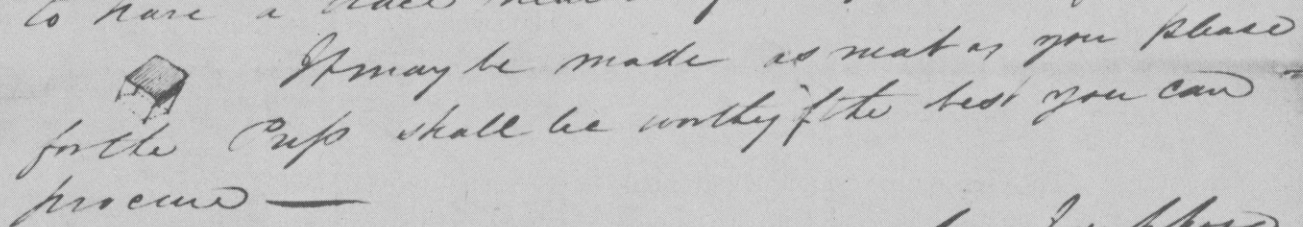 to have a
It may be made as neat as you please
for the Press shall be worthy of the best you can
procure —